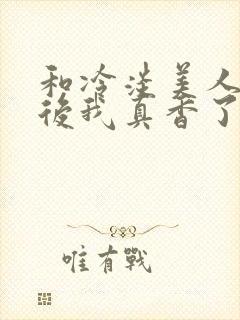 和冷淡美人
後我真香了
唯有戰